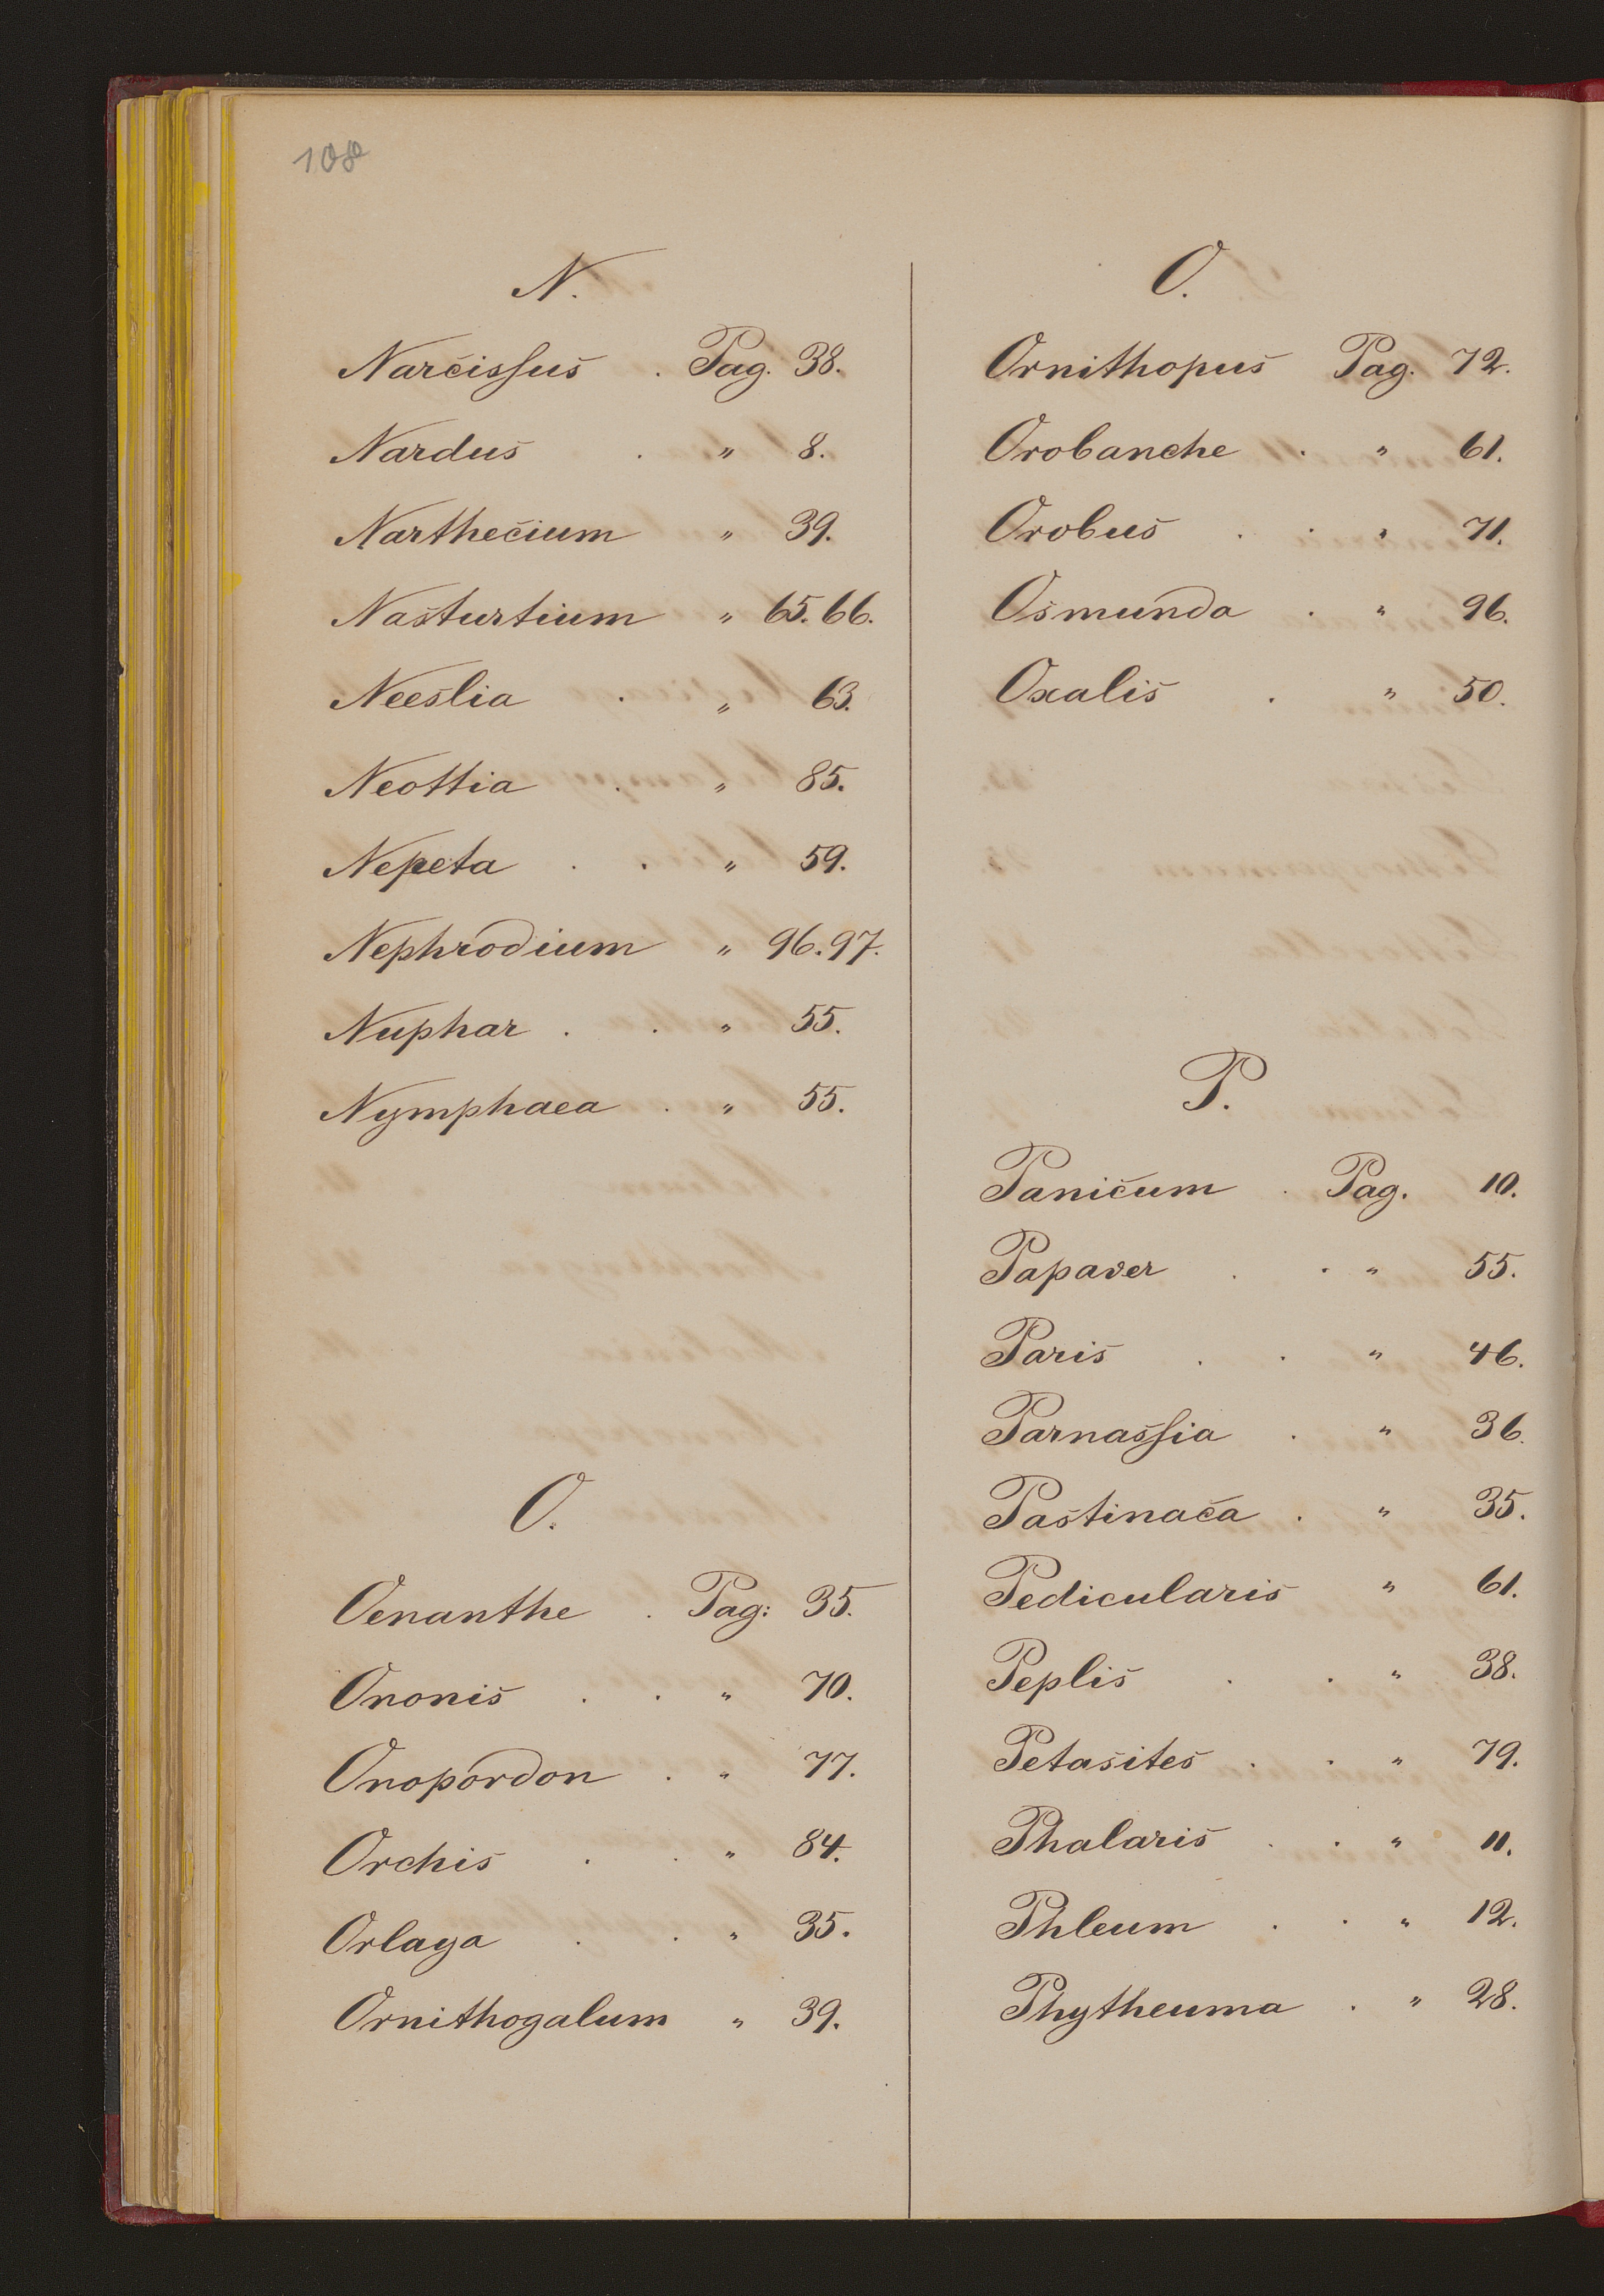 108
N.
Narcissus . Pag. 38.
Nardus . " 8.
Narthecium " 39.
Nasturtium " 65. 66.
Neeslia . " 63.
Neottia . " 85.
Nepeta . . " 59.
Nephrodium " 96. 97.
Nuphar . . " 55.
Nymphaea . " 55.
O.
Oenanthe . Pag: 35.
Ononis . . " 70.
Onopordon . " 77.
Orchis . . " 84.
Orlaya . . " 35.
Ornithogalum " 39.
O.
Ornithopus Pag. 72.
Orobanche . " 61.
Orobus . . " 71.
Osmunda . " 96.
Oxalis . " 50.
P.
Panicum . Pag. 10.
Papaver . . " 55.
Paris . . " 46.
Parnassia . " 36.
Pastinaca . " 35.
Pedicularis " 61.
Peplis . . " 38.
Petasites . . " 79.
Phalaris . . " 11.
Phleum . . " 12.
Phytheuma . " 28.